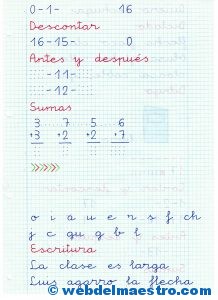 0-1- 16
Descontar
16-15- 0
Antes y después
-11-
-12-
Sumas
3 7 5 6
+3 +2 +2 +7
>>>>>>
o i a u e n s f ch
j c gu g b l
Escritura
La clase es larga
Luis agarro la flecha
© webdelmaestro.com